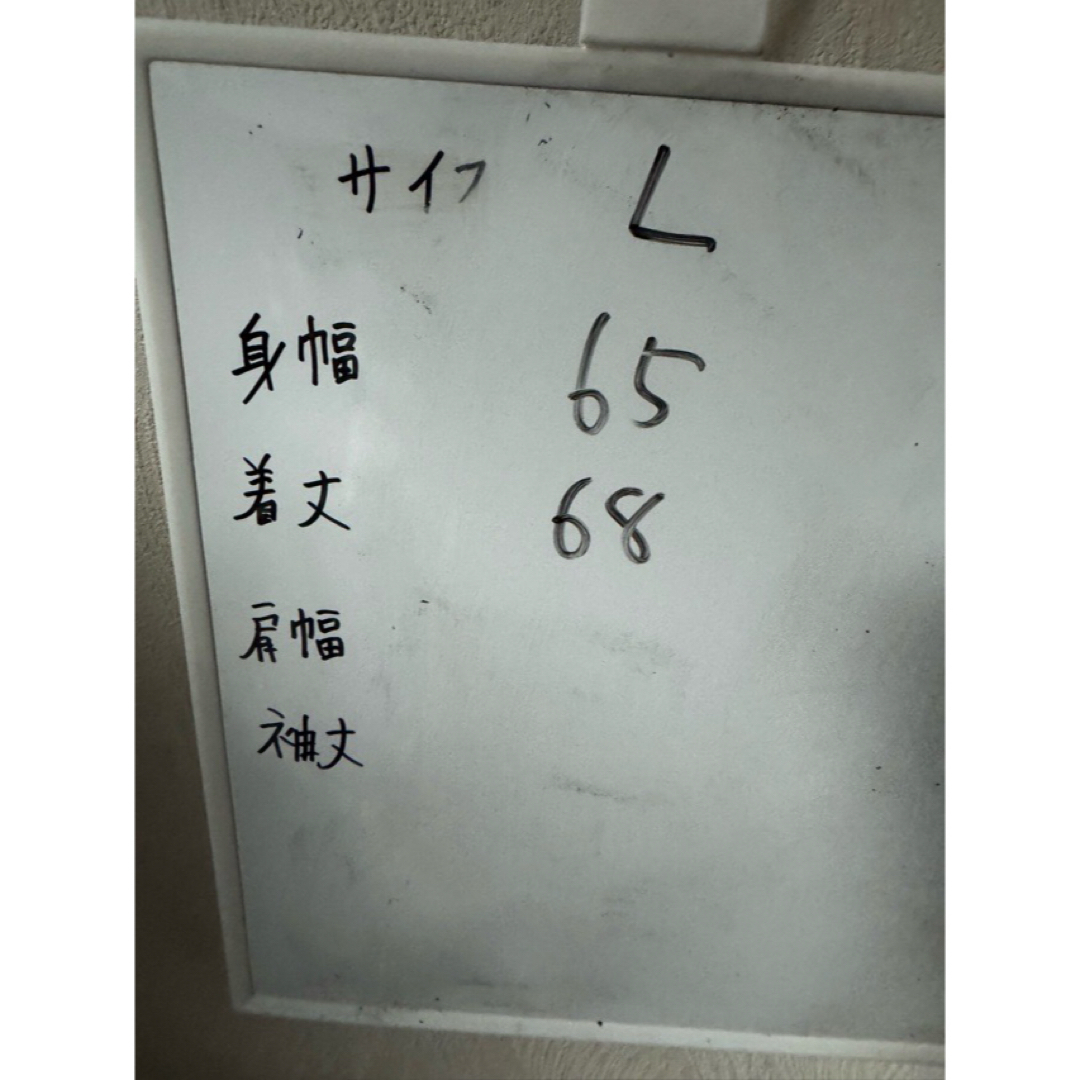 サイフ L
身幅 65
着丈 68
肩幅
袖丈